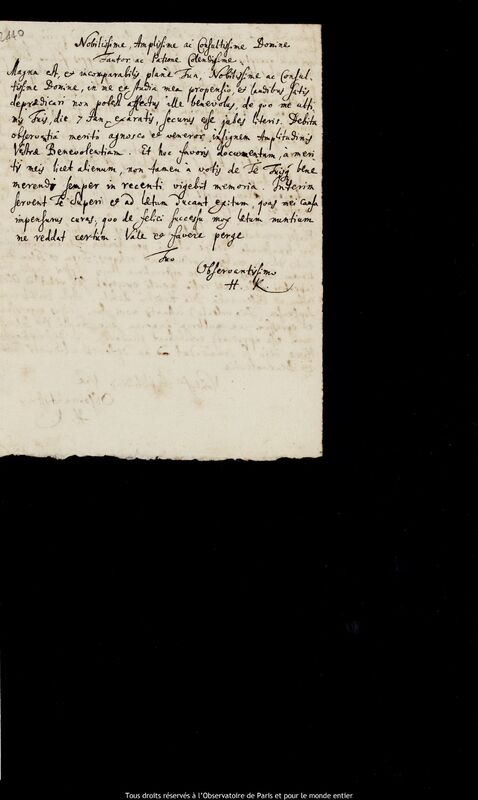 2440
Nobilissime, Amplissime ac Consultissime Domine
Fautor ac Patrone Colendissime.
Magna est, et incomparabilis planè Tua, Nobilissime ac Consul-
tissime Domine, in me et studia mea propensio, et laudibus satis
deprædicari non potest affectus ille benevolus, de quo me ulti-
mis Tuis, die 7 Jan. exaratis, securus esse jubes literis. Debita
observantiâ meritò agnosco et veneror insignem Amplitudinis
Vestræ Benevolentiam. Et hoc favoris documentum, a meri-
tis meis licet alienum, non tamen à votis de Te Tuisq bene
merendi semper in recenti vigebit memoria. Interim
servent Te Superi et ad lætum ducant exitum, quas mei causa
impensurus curas, quo de felici successu mox lætum nuntium
me reddat certum. Vale et favere perge
Tuo
Observantissimo
H. K.
Tous droits réservés à l'Observatoire de Paris et pour le monde entier